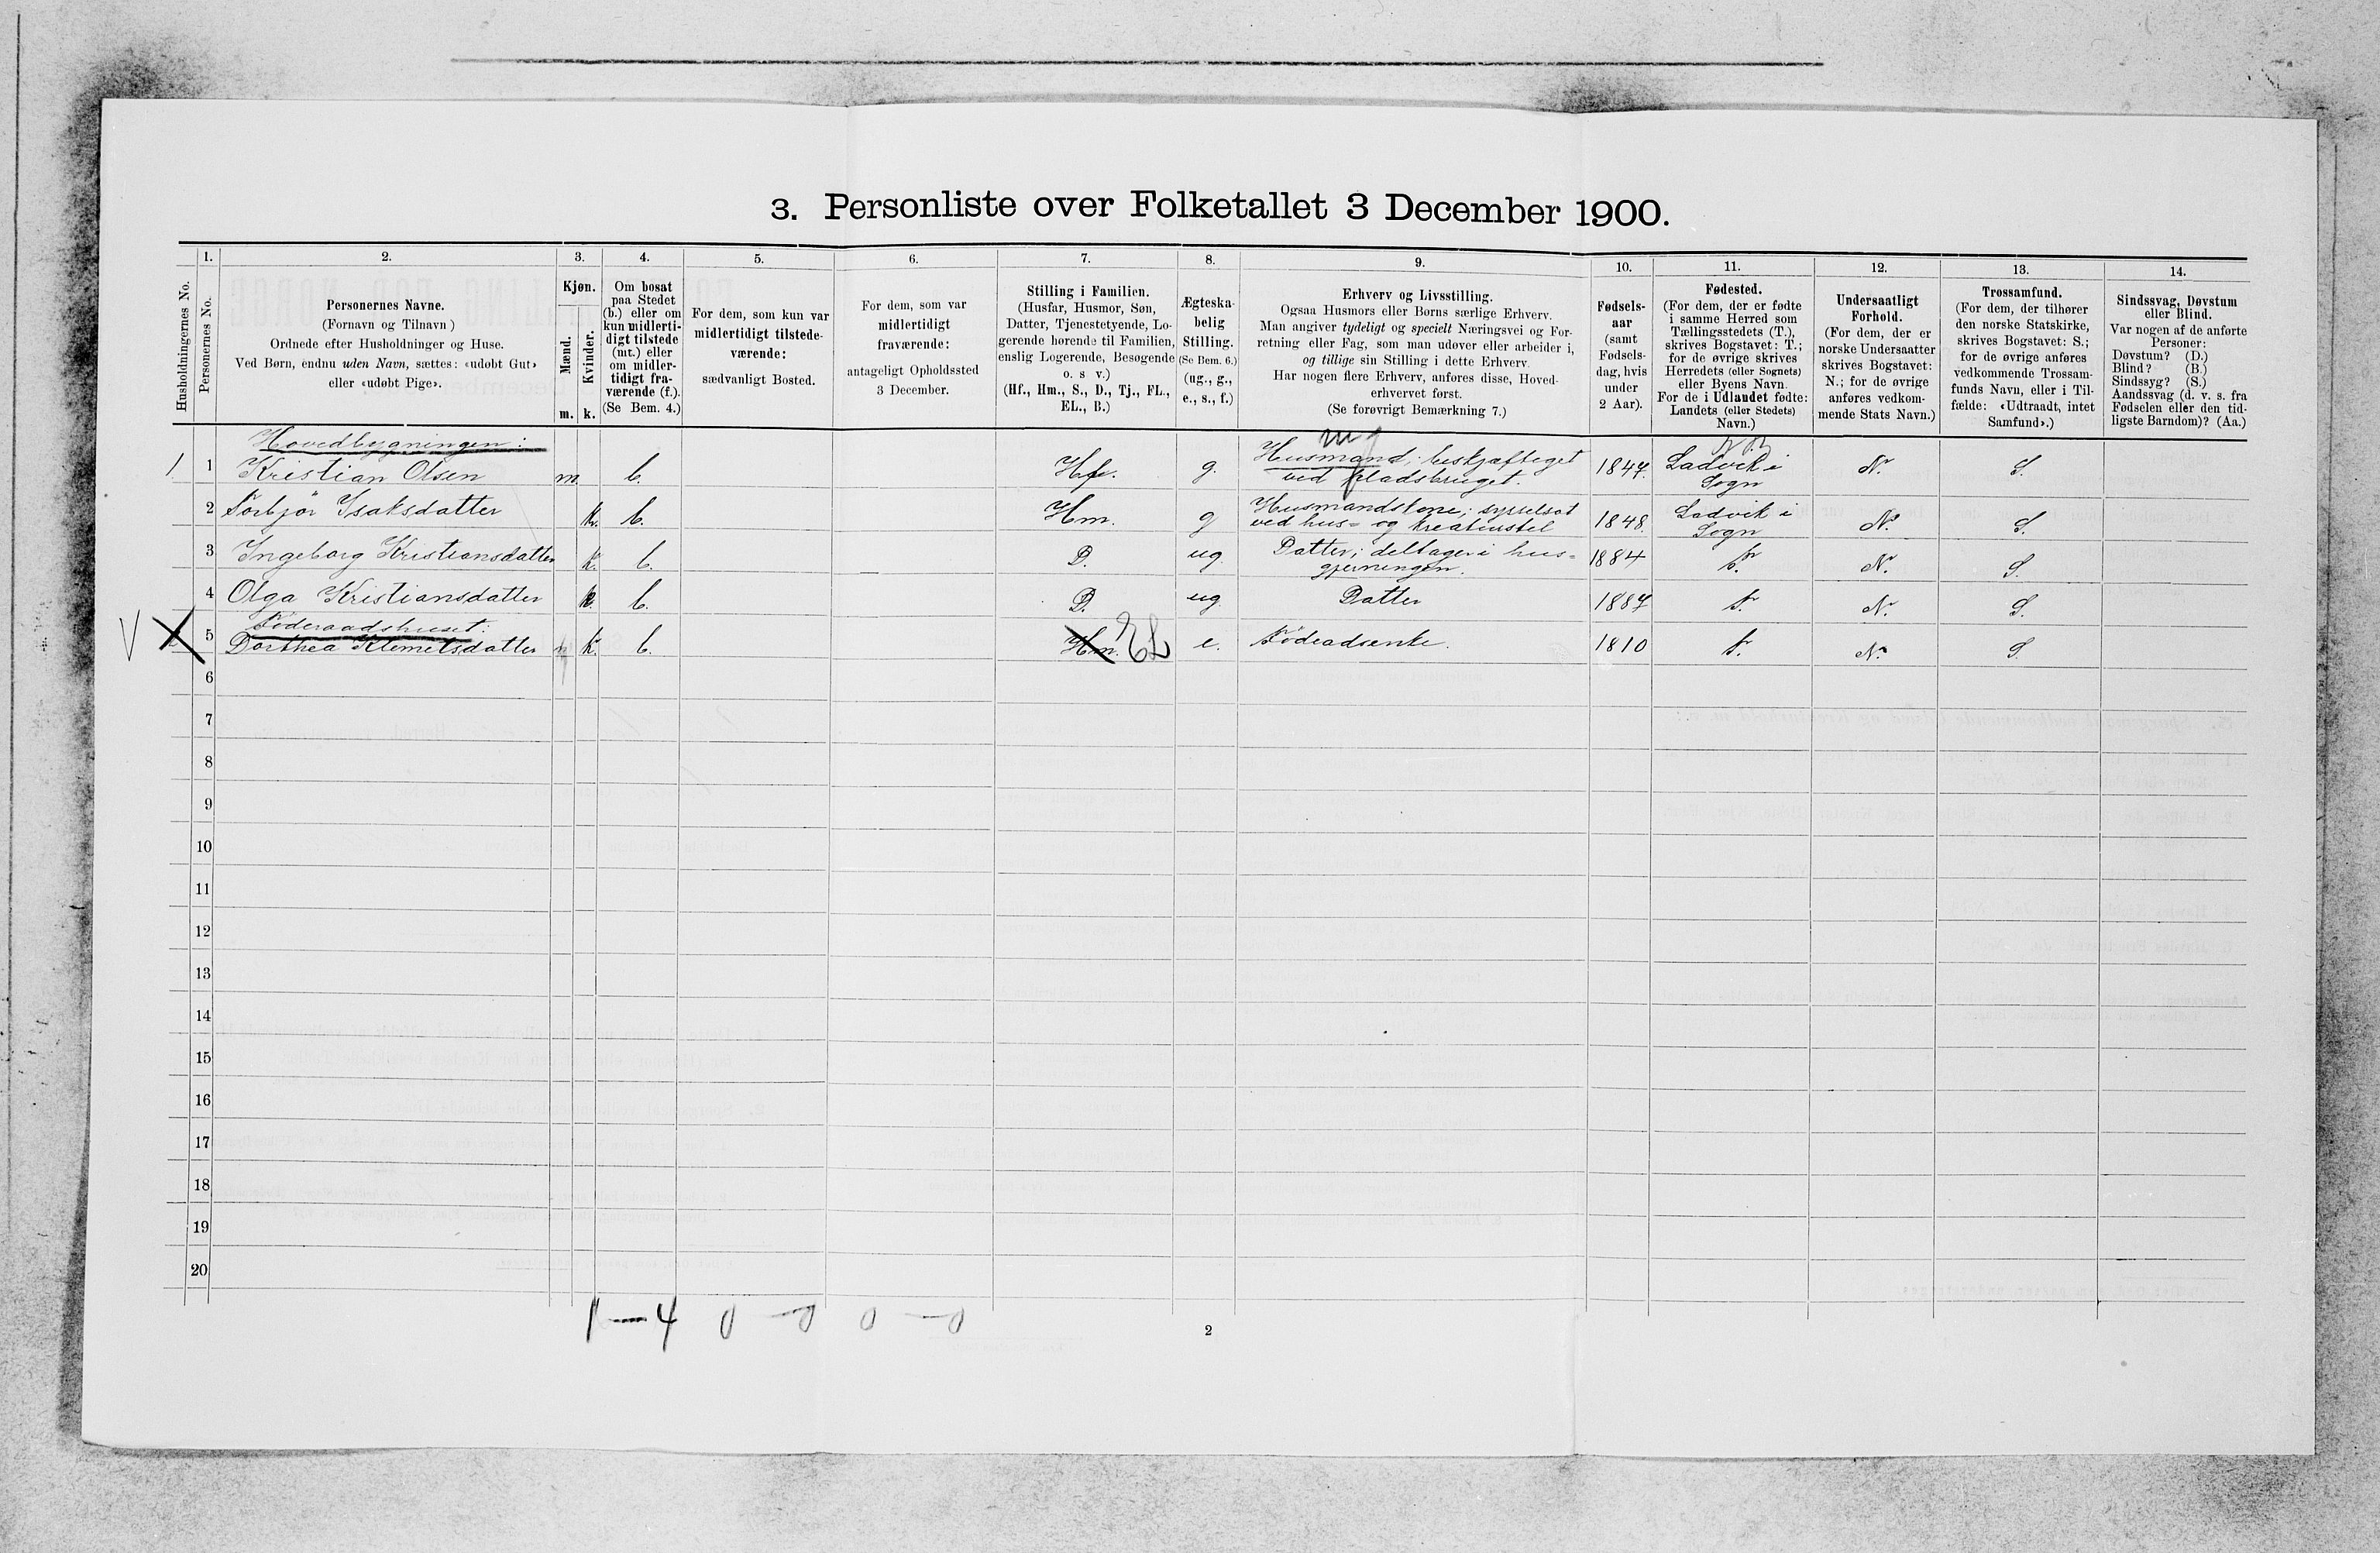 3. Personliste over Folketallet 3 December 1900.
Husholdningernes No.
1.
Personernes No.
2.
Personernes Navne.
(Fornavn og Tilnavn )
Ordnede efter Husholdninger og Huse.
Ved Børn, endnu uden Navn, sættes: «udøbt Gut»
eller «udøbt Pige».
3.
Kjøn.
Mænd.
Kvinder.
m. k.
4.
Om bosat
paa Stedet
(b.) eller om
kun midlerti-
digt tilstede
(mt.) eller
om midler-
tidigt fra-
værende (f.).
(Se Bem. 4.)
5.
For dem, som kun var
midlertidigt tilstede-
værende:
sædvanligt Bosted.
6.
For dem, som var
midlertidigt
fraværende:
antageligt Opholdssted
3 December.
7.
Stilling i Familien.
(Husfar, Husmor, Søn,
Datter, Tjenestetyende, Lo-
gerende hørende til Familien,
enslig Logerende, Besøgende
o. s v.)
(Hf., Hm., S., D., Tj., FL.,
EL., B.)
8.
Ægteska-
belig
Stilling.
(Se Bem. 6.)
(ug., g.,
e., s., f.)
9.
Erhverv og Livsstilling.
Ogsaa Husmors eller Børns særlige Erhverv.
Man angiver tydeligt og specielt Næringsvei og For-
retning eller Fag, som man udøver eller arbeider i,
og tillige sin Stilling i dette Erhverv.
Har nogen flere Erhverv, anføres disse, Hoved-
erhvervet først.
(Se forøvrigt Bemærkning 7.)
10.
Fødsels-
aar
(samt
Fødsels-
dag, hvis
under
2 Aar).
11.
Fødested.
(For dem, der er fødte
i samme Herred som
Tællingsstedets (T.),
skrives Bogstavet: T.;
for de øvrige skrives
Herredets (eller Sognets)
eller Byens Navn.
For de i Udlandet fødte:
Landets (eller Stedets)
Navn.)
12.
Undersaatligt
Forhold.
(For dem, der er
norske Undersaatter
skrives Bogstavet:
N.; for de øvrige
anføres vedkom-
mende Stats Navn.)
13.
Trossamfund.
(For dem, der tilhører
den norske Statskirke,
skrives Bogstavet: S.;
for de øvrige anføres
vedkommende Trossam-
funds Navn, eller i Til-
fælde: «Udtraadt, intet
Samfund».)
14.
Sindssvag, Døvstum
eller Blind.
Var nogen af de anførte
Personer:
Døvstum? (D.)
Blind? (B.)
Sindssyg? (S.)
Aandssvag (d. v. s. fra
Fødselen eller den tid-
ligste Barndom)? (Aa.)
Hovedbygningen:
1 1 Kristian Olsen m. b. Hf. g. Husmand; beskjæftiget
ved pladsbruget. 1847. Ladvik i
Sogn N. S.
2 Torbjør Isaksdatter k. b. Hm. g Husmandskone; sysselsat
ved hus- og kreaturstel 1848. Ladvik i
Sogn N. S.
3 Ingeborg Kristiansdatter k. b. D. ug. Datter; deltager i hus-
gjerningen. 1884 T. N. S.
4 Olga Kristiansdatter k. b. D. ug. Datter 1887 T. N. S.
Føderaadshuset.
5 Dorthea Klemetsdatter k. b. Hm. EL e. Føderadsenke. 1810 T. N. S.
6
7
8
9
10
11
12
13
14
15
16
17
18
19
20
1 — 4 0 — 0 0 — 0
2